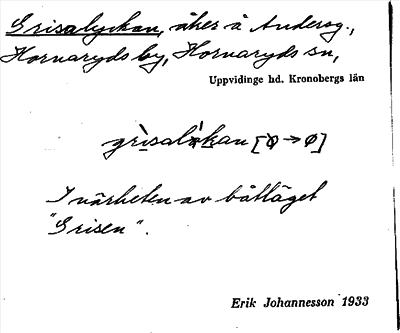 Grisalyckan, åker å Andersg.,
Hornaryds by, Hornaryds sn,
Uppvidinge hd. Kronobergs län
I närheten av båtläget
"Grisen".
Erik Johannesson 1933